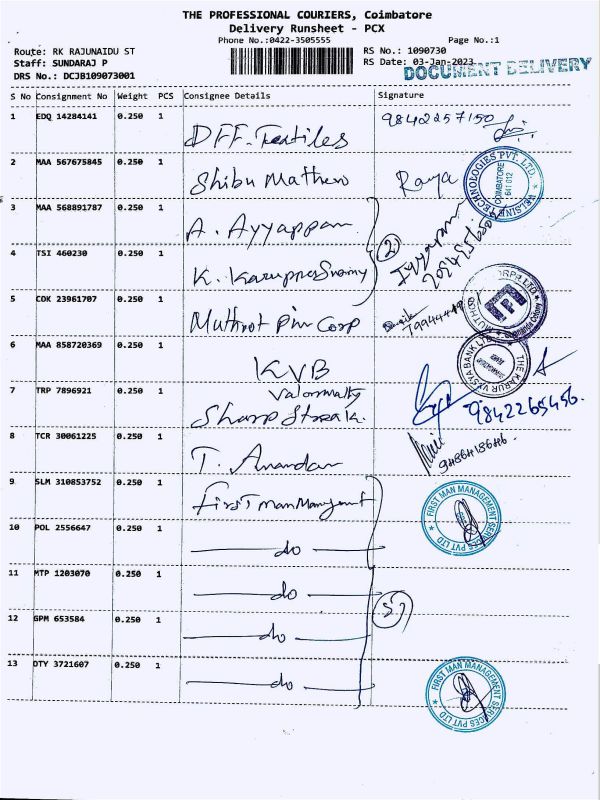 THE PROFESSIONAL COURIERS, Coimbatore
Delivery Runsheet - PCX
Phone No.:0422-3505555
Page No.:1
Route: RK RAJUNAIDU ST
RS No.: 1090730
Staff: SUNDARAJ P
RS Date: 03-Jan-2023
DRS No.: DCJB109073001
DOCUMENT DELIVERY
S No Consignment No Weight PCS Consignee Details Signature
1 EDQ 14284141 0.250 1 DFF. Textiles 9842257150
2 MAA 567675845 0.250 1 Shibu Mathew Raya
TECHNOLOGIES PVT. LTD. COIMBATORE 641 012
3 MAA 568891787 0.250 1 A. Ayyappan
4 TSI 460230 0.250 1 K. Karuppaswamy (2)
5 COK 23961707 0.250 1 Muthoot Pin Corp
6 MAA 858720369 0.250 1 KVB
THE KARUR VYSYA BANK LTD
Valormatty
7 TRP 7896921 0.250 1 Sharp 9842265456.
8 TCR 30061225 0.250 1 T. Anandan
9 SLM 310853752 0.250 1 First man Managment
FIRST MAN MANAGEMENT SERVICES PVT LTD
10 POL 2556647 0.250 1 do
11 MTP 1203070 0.250 1 do
(5)
12 GPM 653584 0.250 1 do
13 OTY 3721607 0.250 1 do
FIRST MAN MANAGEMENT SERVICES PVT LTD